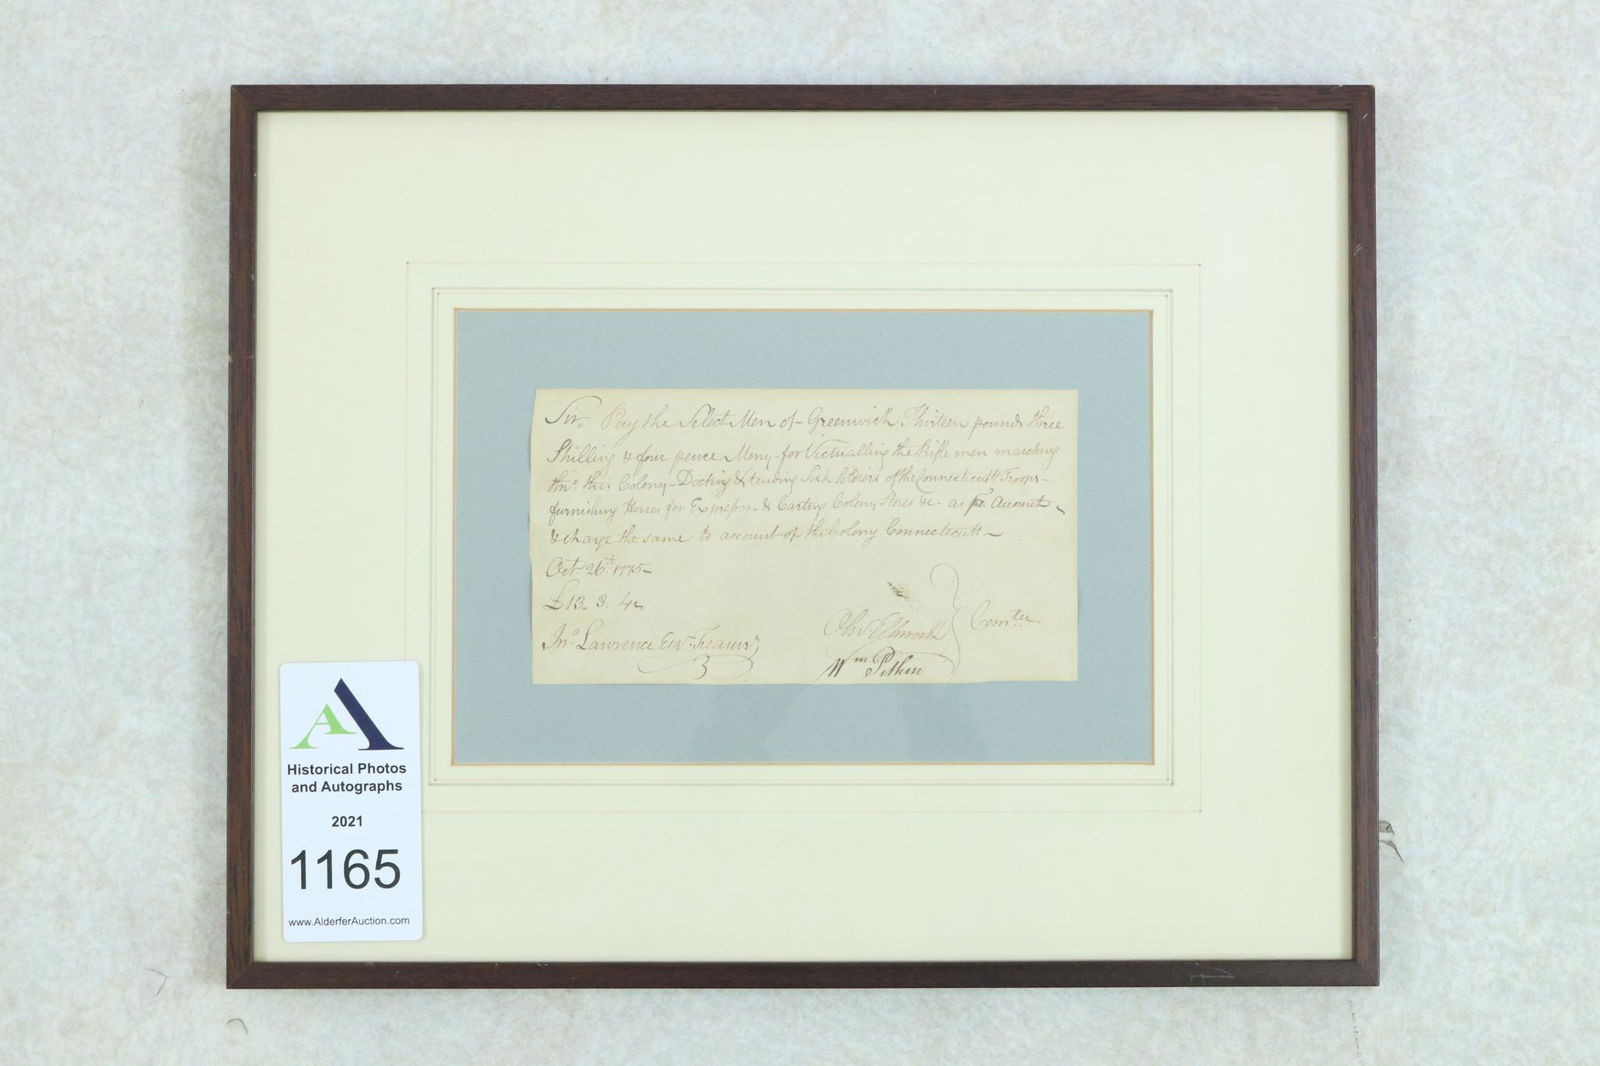 Sir Pay the Select Men of Greenwich Thirteen pounds three
Shilling & four pence Mony for Victualling the Rifle men marching
thro this Colony - Docting & tending Sick Soldiers of the Connecticutt Troops -
furnishing Horses for Expresses - & Carting Colony Stores &c. as pr Account
& charge the same to account of the Colony Connecticutt
Oct. 26t 1775
£13. 3. 4
Comtee
Jno Lawrence Esqr Treasurr
Olivr Ellsworth
Wm Pitkin
Historical Photos
and Autographs
2021
1165
www.AlderferAuction.com